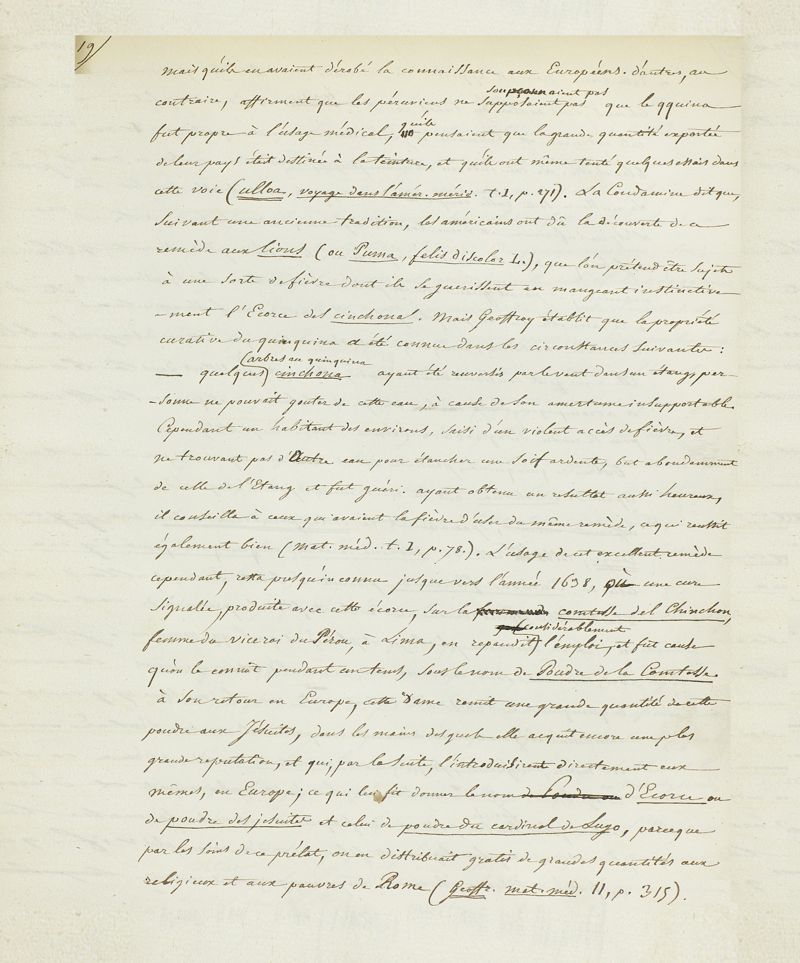 19/
mais qu'ils en avaient dérobé la connaissance aux Européens. d'autres, au
soupçonnaient pas
contraire, affirment que les péruviens ne supposaient pas que le qquina
qu'ils
fut propre à l'usage médical, pensaient que la grande quantité exportée
de leur pays était destinée à la teinture, et qu'ils ont même tenté quelques essais dans
cette voie (ulloa, voyage dans l'amér. mérid. t. 1, p. 271). La Condamine dit que,
suivant une ancienne tradition, les américains ont dû la découverte de ce
remède aux lions (ou Puma, felis discolor L.), que l'on prétend être sujets
à une sorte de fièvre dont ils se guerissent en mangeant instinctive
-ment l'Ecorce des cinchona. Mais Geoffroy établit que la propriété
curative du quinquina a été connue dans les circonstances suivantes :
(arbres au quinquina
— quelques) cinchona ayant été renversés par le vent dans un étang, per-
-sonne ne pouvait gouter de cette eau, à cause de son amertume insupportable.
Cependant un habitant des environs, saisi d'un violent accès de fièvre, et
ne trouvant pas d'autre eau pour étancher une soif ardente, but abondamment
de celle de l'Etang et fut guéri. ayant obtenu un resultat aussi heureux,
il conseilla à ceux qui avaient la fièvre d'user du même remède, ce qui reussit
également bien (mat. méd. t. 1, p. 78.). L'usage de cet excellent remède
cependant, resta presqu'inconnu jusque vers l'année 1638, où une cure
signalée, produite avec cette écorce, sur la comtesse del Chinchon,
considérablement
femme du viceroi du Pérou, à Lima, en repandit) l'emploi, et fut cause
qu'on le connût pendant un tems, sous le nom de Poudre de la Comtesse.
à son retour en Europe, cette Dame remit une grande quantité de cette
poudre aux Jésuites, dans les mains desquels elle acquit encore une plus
grande reputation, et qui, par la suite, l'introduisirent directement eux
mêmes, en Europe ; ce qui lui fit donner le nom de Poudre ou d'Ecorce ou
de poudre des jésuites et celui de poudre du cardinal de Lugo, parceque
par les soins de ce prélat, on en distribuait gratis de grandes quantités aux
religieux et aux pauvres de Rome (Geoffr. mat. méd. 11, p. 315).